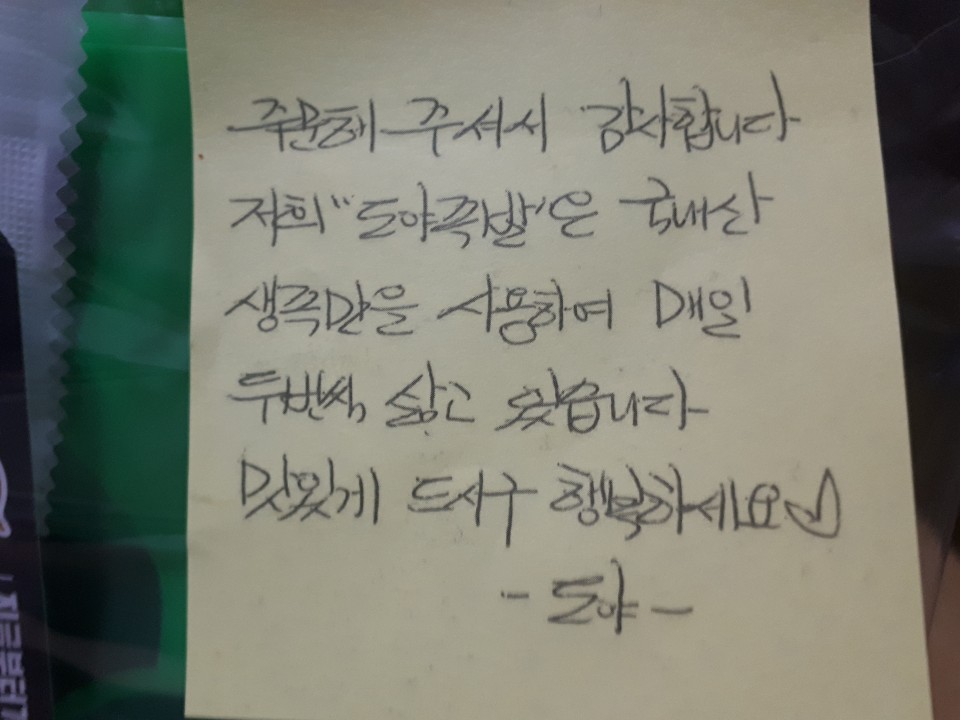 주문해 주셔서 감사합니다
저희 "도야족발"은 국내산
생족만을 사용하여 매일
두번씩 삶고 있습니다
맛있게 드시구 행복하세요♡
- 도야 -